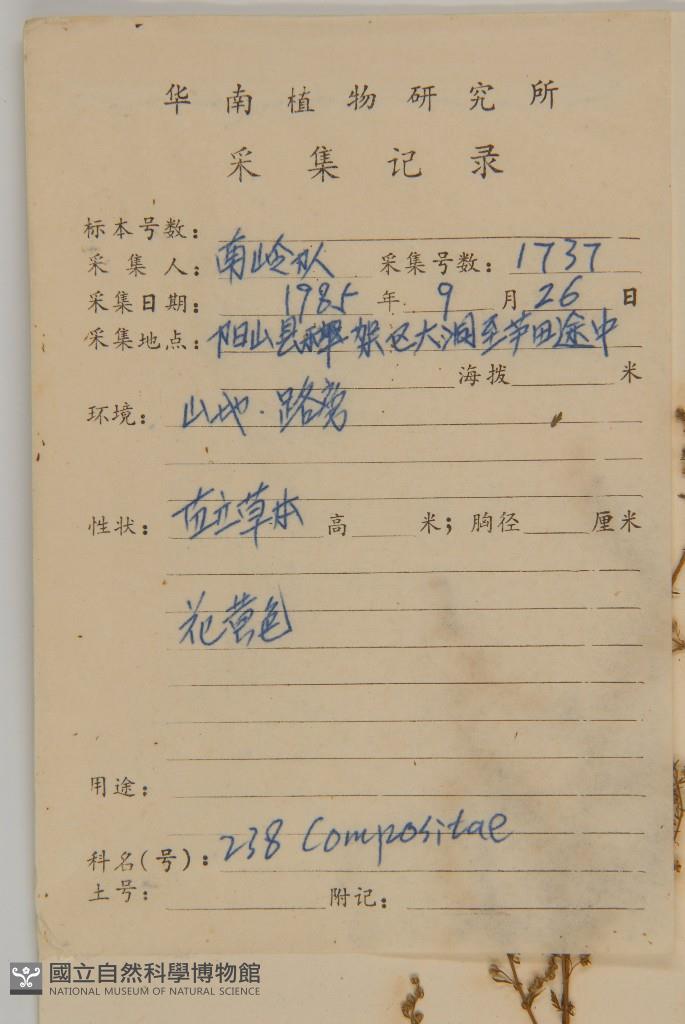 华南植物研究所
采集记录
标本号数：
采集人：南岭队 采集号数：1737
采集日期：1985年9月26日
采集地点：阳山县秤架区大洞至茅田途中
海拨 米
环境：山地．路旁
性状：直立草本 高 米；胸径 厘米
花黄色
用途：
科名(号)：238 Compositae
土号： 附记：
國立自然科學博物館
NATIONAL MUSEUM OF NATURAL SCIENCE